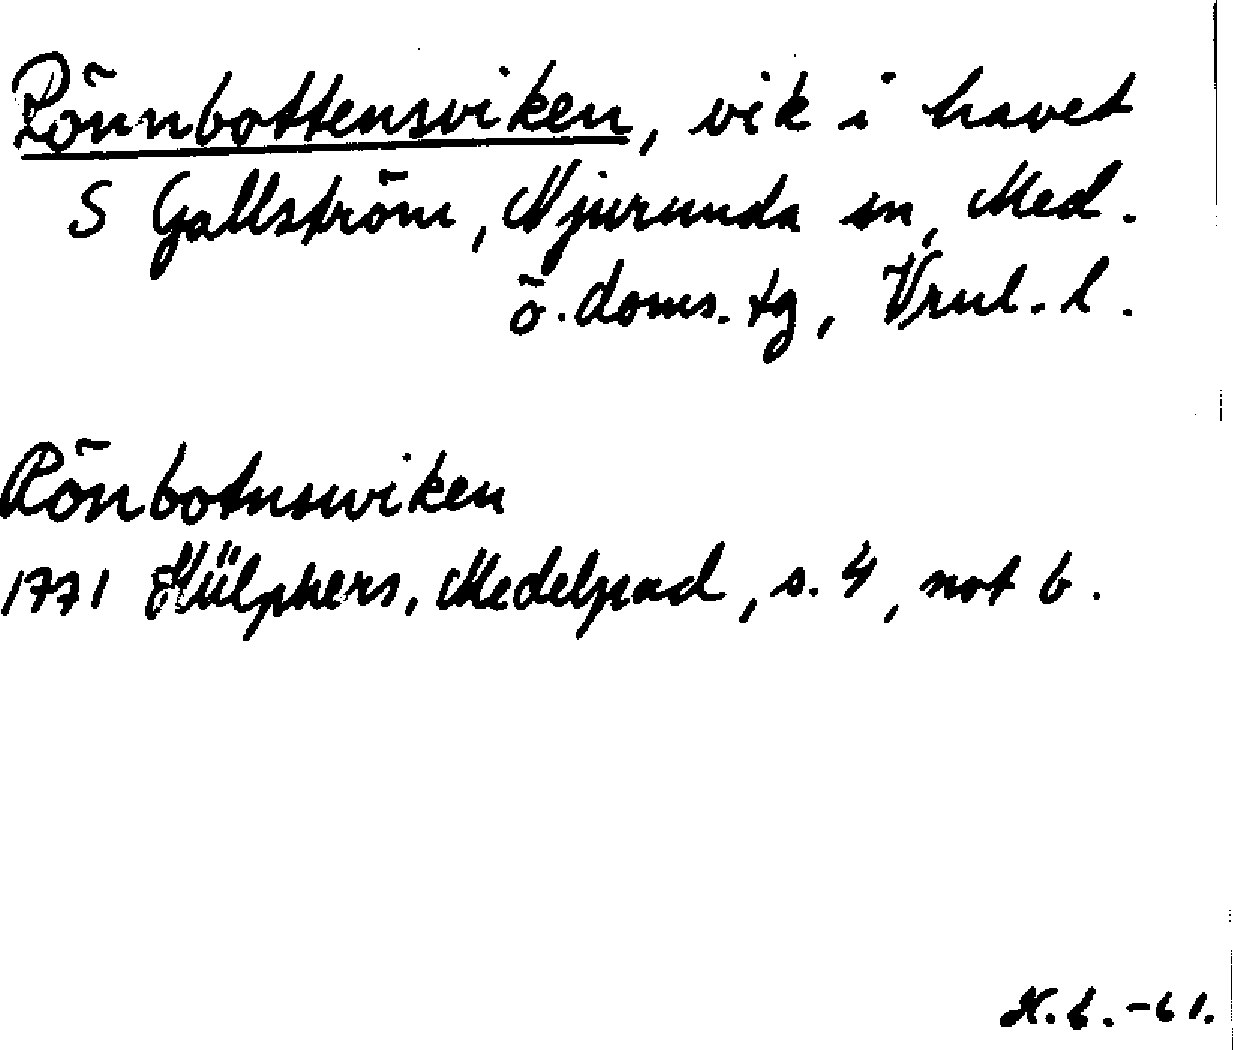 Rönnbottensviken, vik i havet
S Gallström, Njurunda sn, Med.
ö. doms. tg, Vrnl. l.
Rönbotnswiken
1771 Hülphers, Medelpad, s. 4, not b.
H. b. -61.